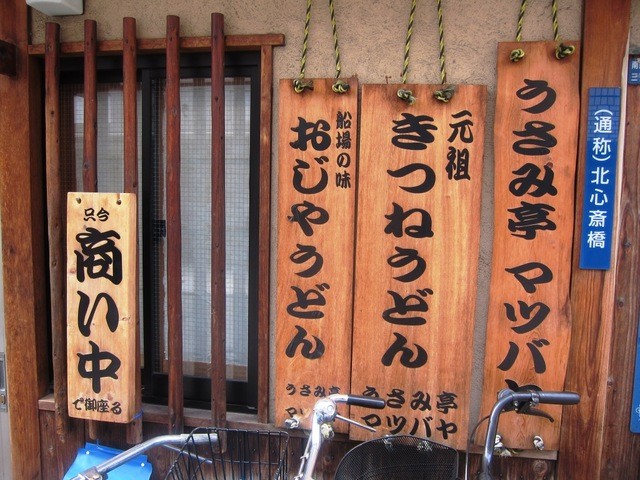 只今
商い中
で御座る
船場の味
おじやうどん
うさみ亭
マツ
元祖
きつねうどん
うさみ亭
マツバヤ
うさみ亭 マツバヤ
(通称)北心斎橋